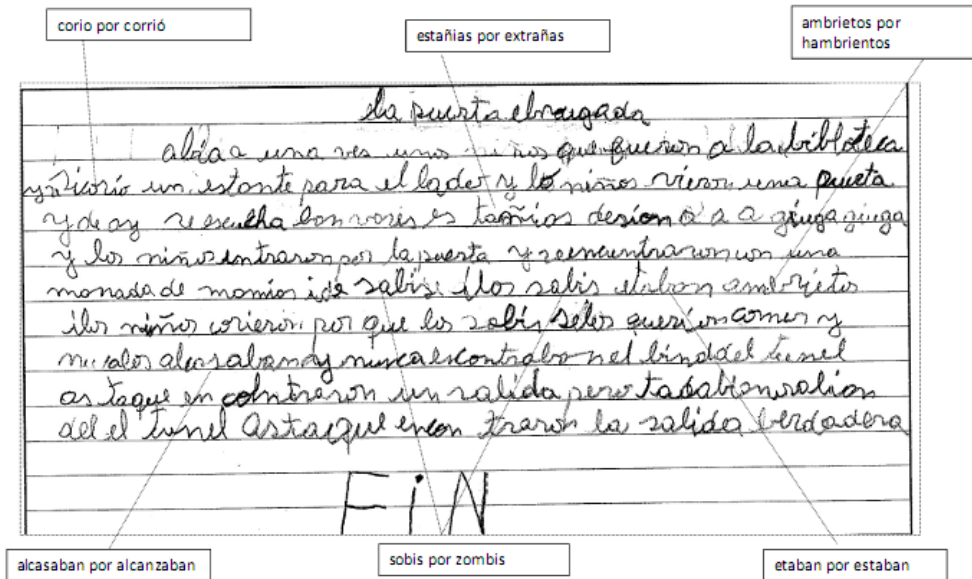 corio por corrió
estañias por extrañas
ambrietos por
hambrientos
la puerta
abia a una ves unos niños que fueron a la bibloteca
y corio un estante para el lado y lo niños vieron una pueta
y de ay se escucha bon voses es tañias desion a a a
y los niños entraron por la puerta y se encuntraron con una
monada de momias i de sobis i los sobis etaban ambrietos
i los niños corieron por que los sobis selos querion comer y
nunca los alcasaban y nunca encontraba n el bin del tunel
as ta que en contraron un salida pero tadabion salian
del el tunel Asta que encon traron la salida berdadera
FiN
alcasaban por alcanzaban
sobis por zombis
etaban por estaban